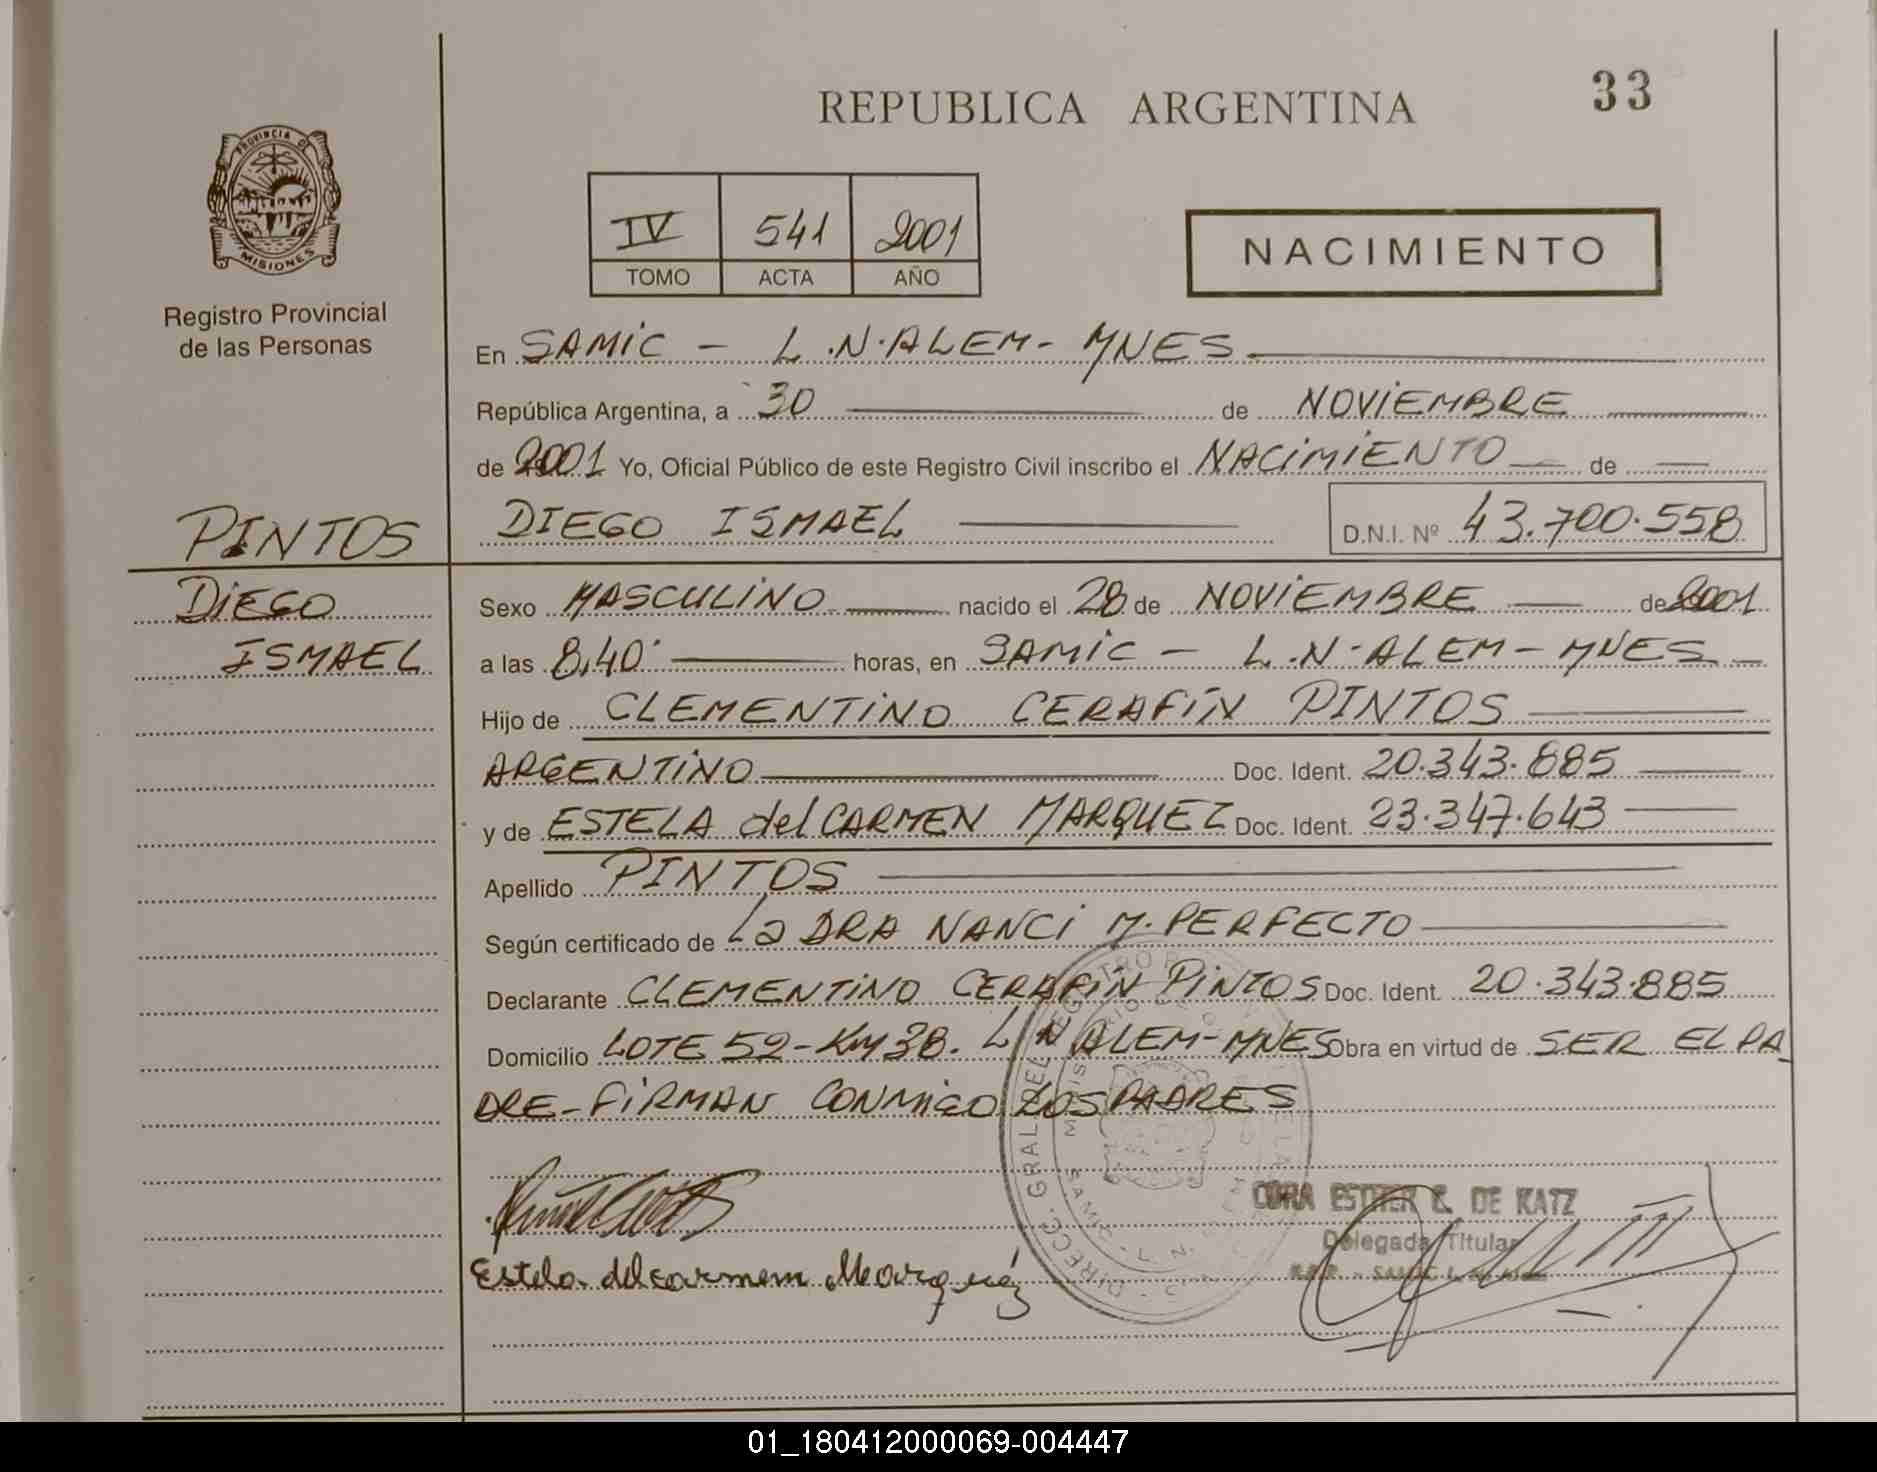 REPUBLICA ARGENTINA
33
PROVINCIA DE
MISIONES
Registro Provincial
de las Personas
IV 541 2001
TOMO ACTA AÑO
NACIMIENTO
En SAMiC - L.N.ALEM- MNES
República Argentina, a 30 de NOViEMBRE
de 2001 Yo, Oficial Público de este Registro Civil inscribo el NACiMiENTO de
PINTOS
DIEGO ISMAEL
D.N.I. Nº 43.700.558
DiEGO
ISMAEL
Sexo MASCULiNO nacido el 28 de NOViEMBRE de 2001
a las 8,40 horas, en SAMiC - L.N-ALEM-MNES
Hijo de CLEMENTiNO CERAFíN PINTOS
ARGENTiNO Doc. Ident. 20.343.885
y de ESTELA del CARMEN MARQUEZ Doc. Ident. 23.347.643
Apellido PINTOS
Según certificado de La DRA NANCi M. PERFECTO
Declarante CLEMENTiNO CERAFíN PiNTOS Doc. Ident. 20.343.885
Domicilio LOTE 52-KM 38. L N ALEM-MNES Obra en virtud de SER EL PA
DRE-FiRMAN CONMiGO LOS PADRES
CORA ESTHER G. DE KATZ
Delegada Titular
Estela del carmen Marquéz
01_180412000069-004447